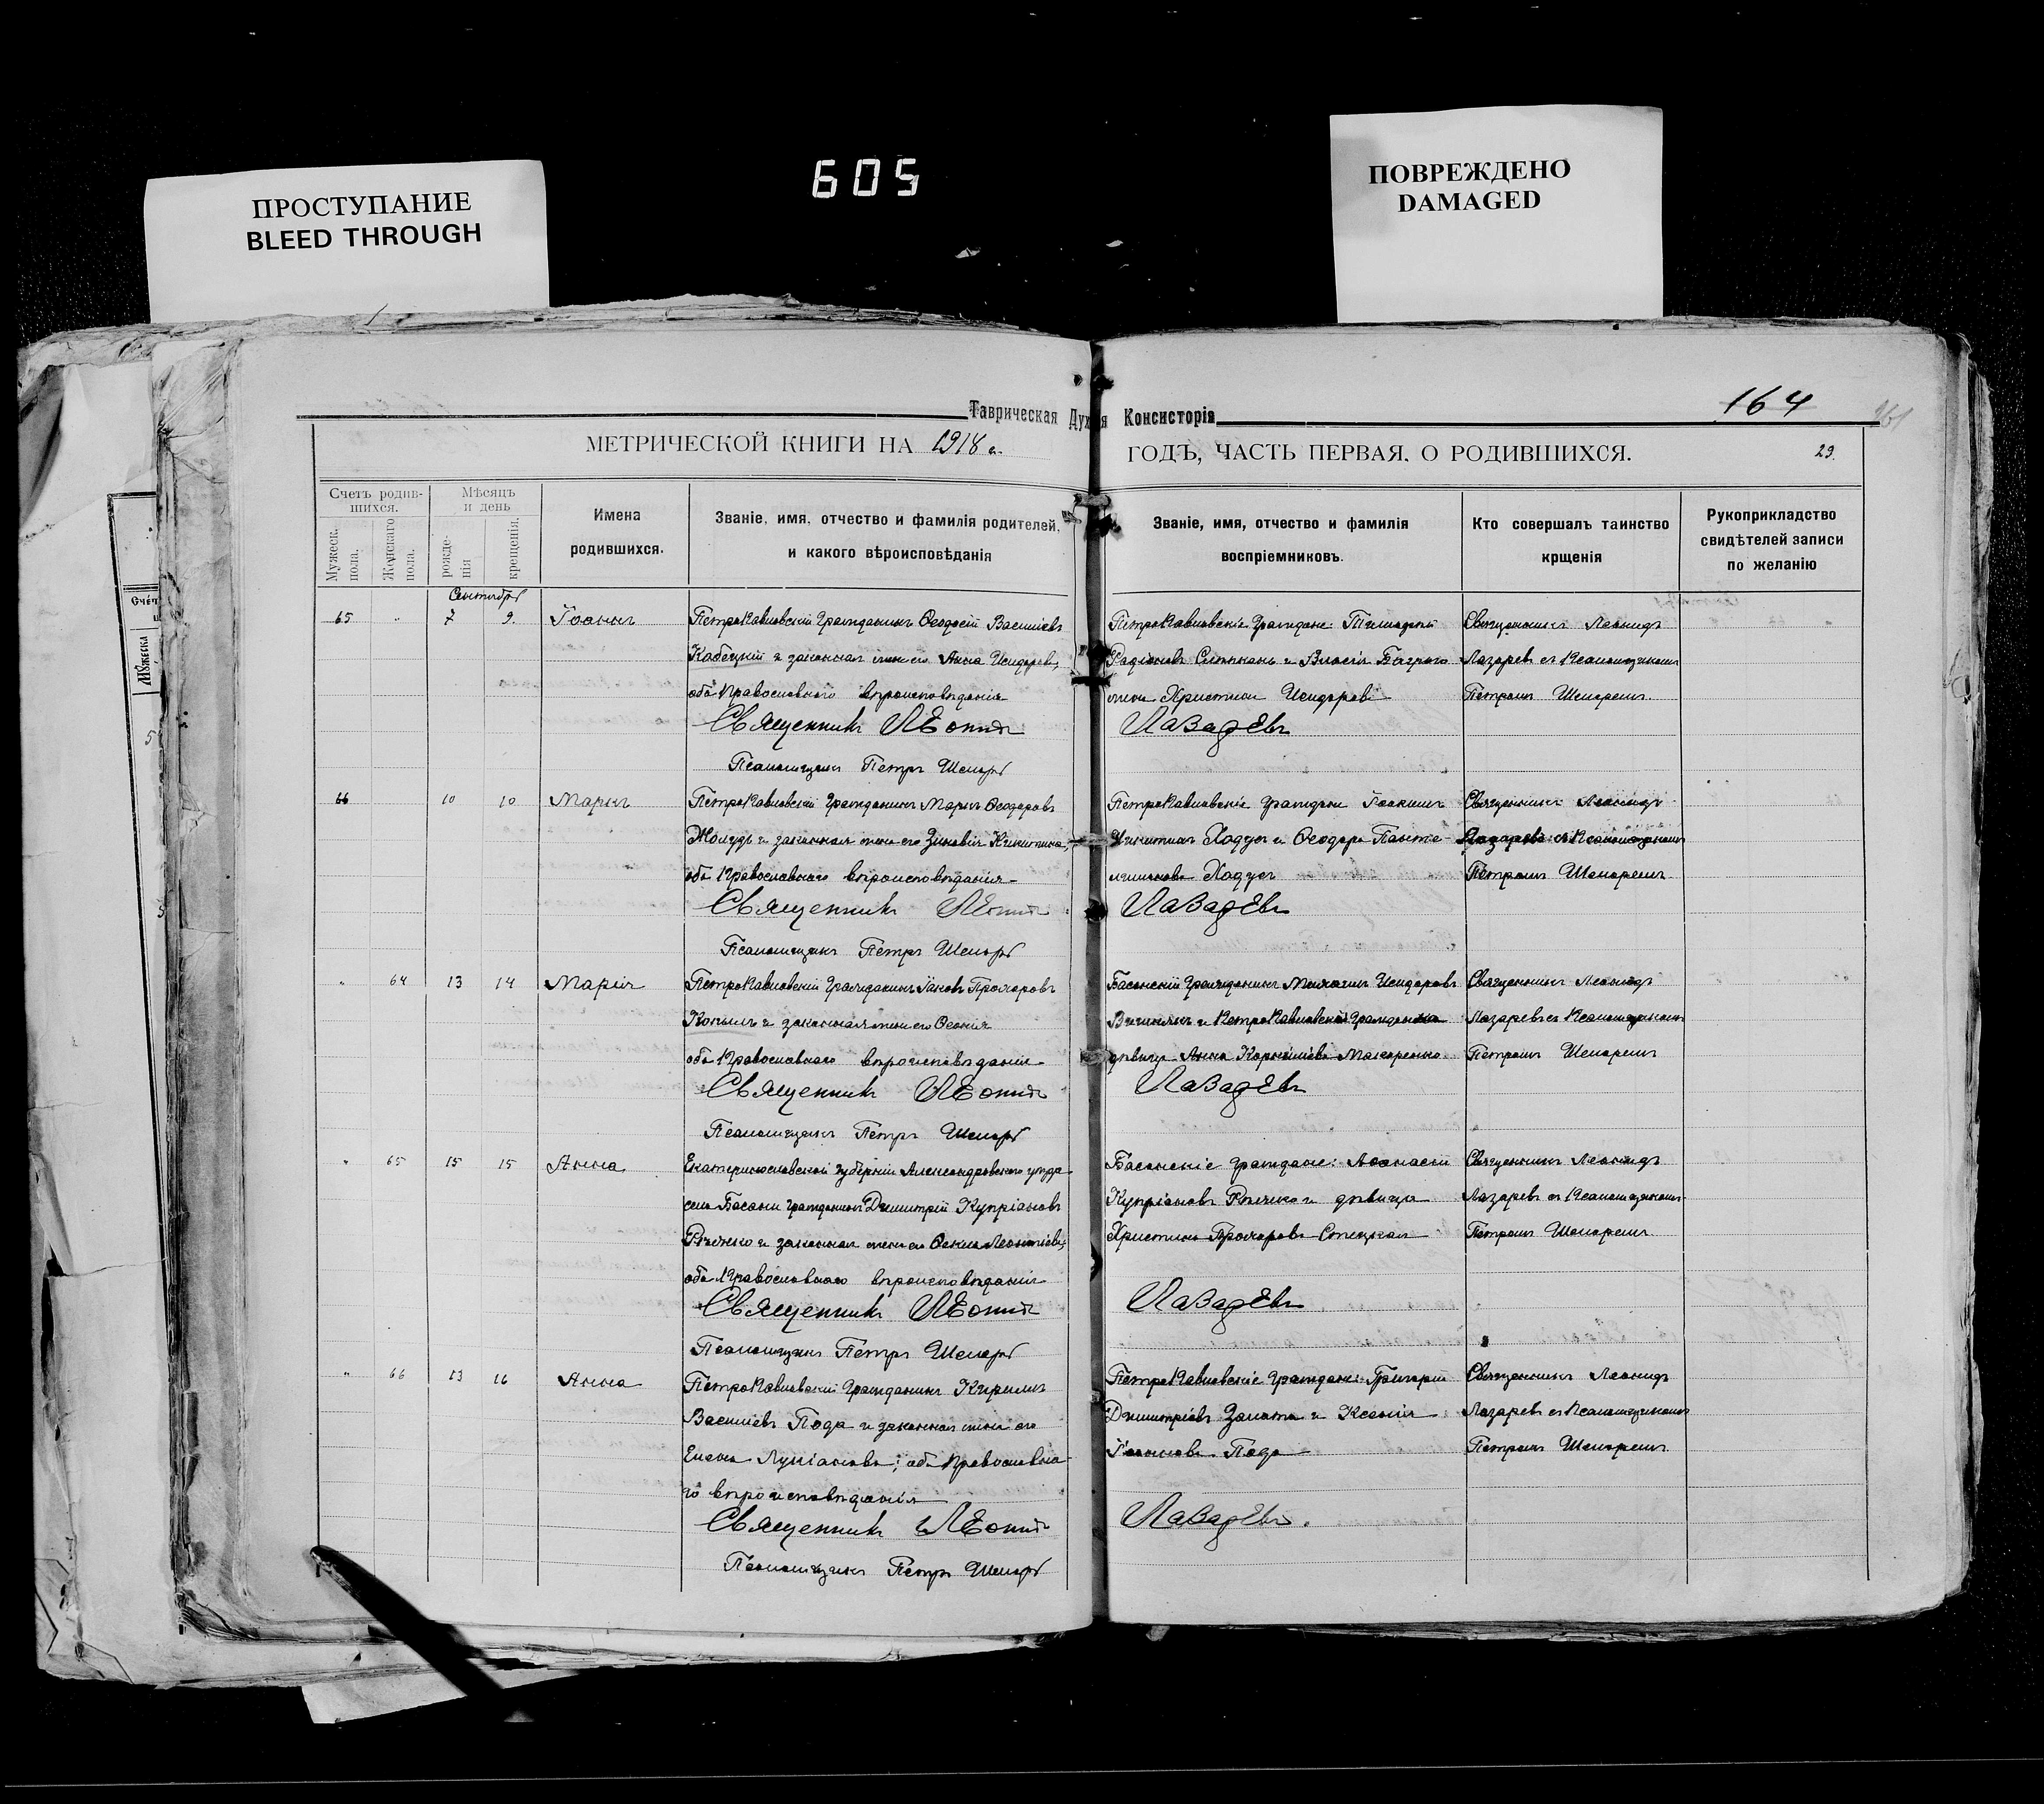 ПРОСТУПАНИЕ
BLEED THROUGH
605
ПОВРЕЖДЕНО
DAMAGED
Таврическая Дух я Консисторія
164
МЕТРИЧЕСКОЙ КНИГИ НА 1918 г.
ГОДЪ, ЧАСТЬ ПЕРВАЯ, О РОДИВШИХСЯ.
29.
Счетъ родив-
шихся.
Мужеск. пола.
Женскаго пола.
Мѣсяцъ
и день
рожде-
нія
крещенія.
Имена
родившихся.
Званіе, имя, отчество и фамилія родителей,
и какого вѣроисповѣданія
Званіе, имя, отчество и фамилія
воспріемниковъ.
Кто совершалъ таинство
крщенія
Рукоприкладство
свидѣтелей записи
по желанію
Сентябрь
65 " 7 9 Іоаннъ
Петропавловскій Гражданинъ Ѳеодосій Васильевъ
Кабецкій и законная жена его Анна Исидорова,
оба Православнаго вѣроисповѣданія
Священникъ Леонидъ
Псаломщикъ Петръ
Петропавловскіе Граждане: Тимофей
Родіоновъ и Власія
жена Христина Исидорова
Лазаревъ
Священникъ Леонидъ
Лазаревъ съ Псаломщикомъ
Петромъ
66 10 10 Маркъ
Петропавловскій Гражданинъ Маркъ Ѳеодоровъ
и законная жена его Зиновія Никитина,
оба Православнаго вѣроисповѣданія
Священникъ Леонидъ
Псаломщикъ Петръ
Петропавловскіе Граждане Іоакимъ
Никитинъ и Ѳеодора Панте-
леимонова
Лазаревъ
Священникъ Леонидъ
Лазаревъ съ Псаломщикомъ
Петромъ
" 64 13 14 Марія
Петропавловскій Гражданинъ Іаковъ Прохоровъ
Копылъ и законная жена его Ѳеонія
оба Православнаго вѣроисповѣданія
Священникъ Леонидъ
Псаломщикъ Петръ
Басанскій Гражданинъ Исидоровъ
и Петропавловская Гражданка
дѣвица Анна Корниліева Макаренко
Лазаревъ
Священникъ Леонидъ
Лазаревъ съ Псаломщикомъ
Петромъ
" 65 15 15 Анна
Екатеринославской губерніи Александровскаго уѣзда
села Басани гражданинъ Димитрій Купріановъ
и законная жена его Леонтіева;
оба Православнаго вѣроисповѣданія
Священникъ Леонидъ
Псаломщикъ Петръ
Басанскіе граждане: Аѳанасій
Купріановъ и дѣвица
Христина Прохорова
Лазаревъ
Священникъ Леонидъ
Лазаревъ съ Псаломщикомъ
Петромъ
" 66 13 16 Анна
Петропавловскій Гражданинъ Кириллъ
Васильевъ Пода и законная жена его
Елена Лукіанова; оба Православна-
го вѣроисповѣданія
Священникъ Леонидъ
Псаломщикъ Петръ
Петропавловскіе Граждане: Григорій
Димитріевъ и Ксенія
Іоаннова Пода
Лазаревъ.
Священникъ Леонидъ
Лазаревъ съ Псаломщикомъ
Петромъ